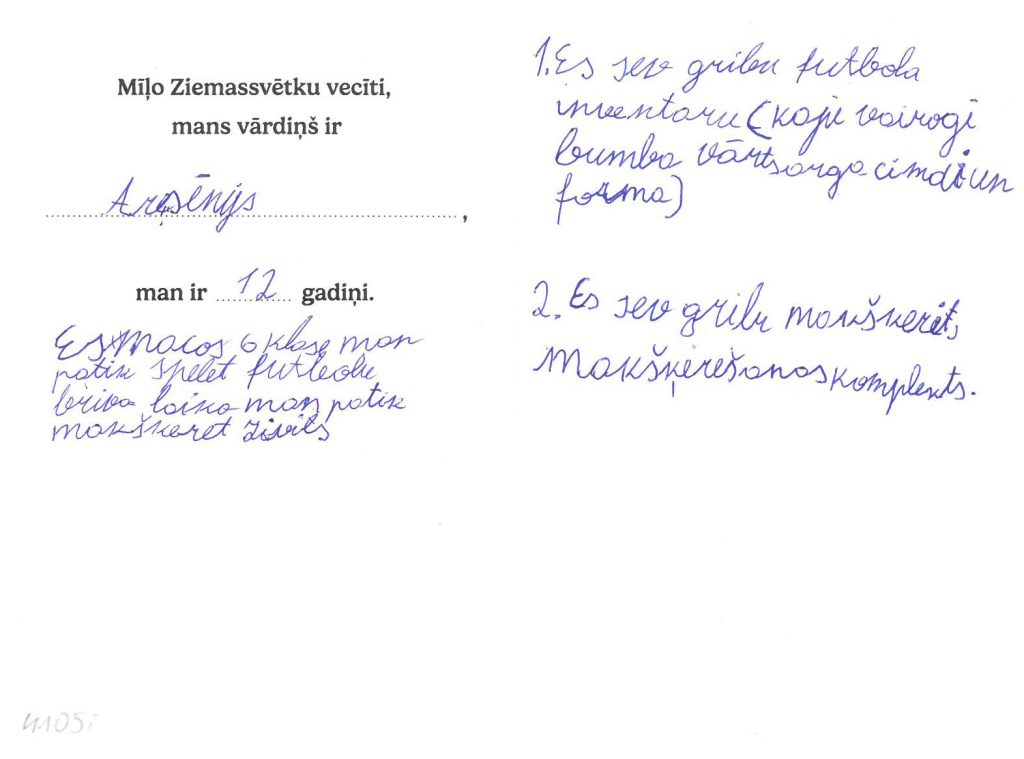 Mīļo Ziemassvētku vecīti,
mans vārdiņš ir
Arsēnijs,
man ir 12 gadiņi.
Es Macos 6 klase man
patik spelet futbolu
briva laika man patik
makškeret zivits
1. Es sev gribu futbola
inventaru (kaju vairogi
bumba vārtsarga cimdi un
forma)
2. Es sev gribu makškerēt,
Makšķerēšanas komplekts.